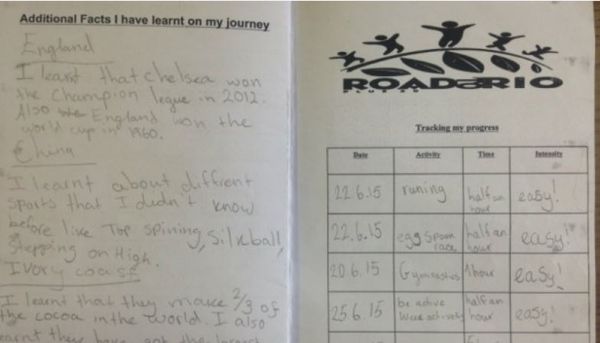 Additional Facts I have learnt on my journey
England
I learnt that chelsea won
the Champion legue in 2012.
Also England won the
world cup in 1960.
China
I learnt about diffrent
sports that I didn't know
before like Top spining, silkball,
stepping on High.
IVory coase
I learnt that they make 2/3 of
the cocoa in the world. I also
earnt they have got the largest
ROADTORIO
PLUS 50
Tracking my progress
Date Activity Time Intensity
22.6.15 runing half an hour easy!
22.6.15 egg spoon race half an hour easy!
20.6.15 Gymnastics 1 hour easy!
25.6.15 be active week activity half an hour easy!